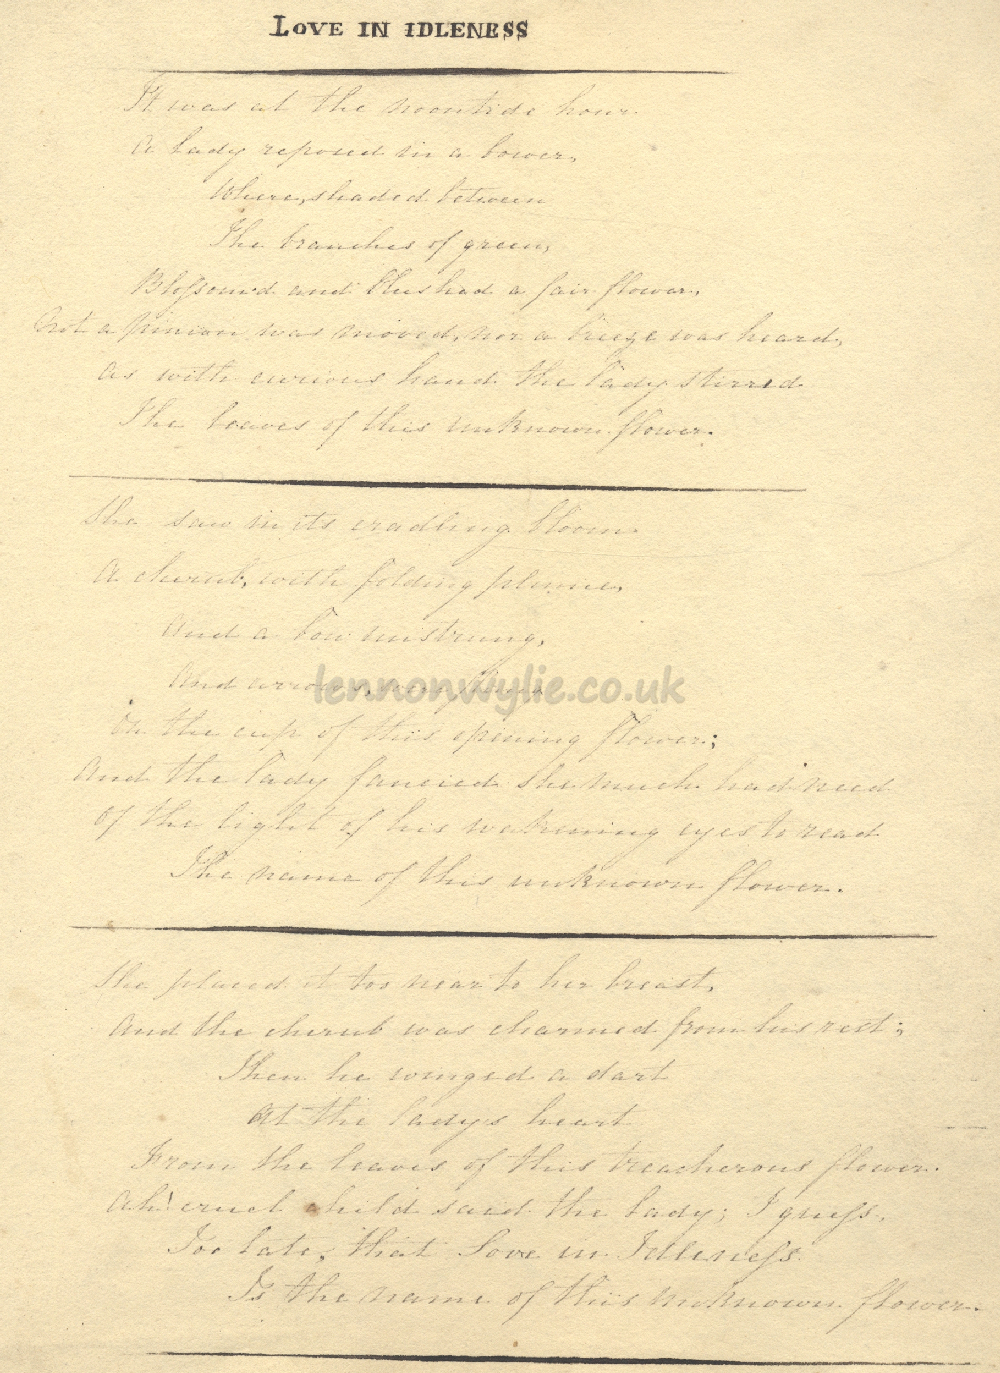 LOVE IN IDLENESS
It was at the noontide hour
A lady reposed in a bower,
Where, shaded between
The branches of green,
Blossom'd and blushed a fair flower.
Not a pinion was moved, nor a breeze was heard,
As with curious hand the lady stirred
The leaves of this unknown flower.
She saw in its cradling bloom
A cherub, with folding plume,
And a bow unstrung,
And arrows,
lennonwylie.co.uk
In the cup of this opening flower;
And the lady fancied she much had need
Of the light of his wakening eyes to read
The name of this unknown flower.
She placed it too near to her breast,
And the cherub was charmed from his rest;
Then he winged a dart
At the lady's heart
From the leaves of this treacherous flower.
Ah! cruel child said the lady; I guess,
Too late, that Love in Idleness
Is the name of this unknown flower.